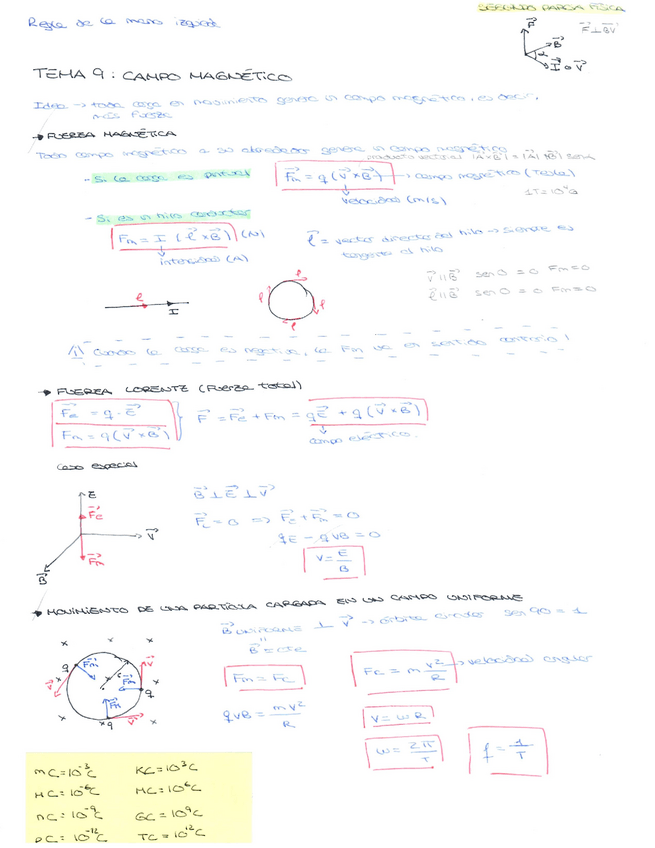 SEGUNDO PARCIAL FÍSICA
Regla de la mano izquierda
F
F ⊥ BV
B
α
I o V
TEMA 9: CAMPO MAGNÉTICO
Idea → toda carga en movimiento genera un campo magnético, es decir,
más fuerza
→ FUERZA MAGNÉTICA
Todo campo magnético a su alrededor genera un campo magnético
|A×B| = |A| |B| sen α
- Si la carga es puntual
Fm = q (V × B) → campo magnético (Tesla)
velocidad (m/s)
- Si es un hilo conductor
Fm = I (ℓ × B) (N)
intensidad (A)
ℓ = vector direccional hilo → siempre es
tangente al hilo
V ∥ B sen 0 = 0 Fm = 0
ℓ ∥ B sen 0 = 0 Fm = 0
ℓ
I
ℓ
ℓ
ℓ
ℓ
¡! Cuando la carga es negativa, la Fm va en sentido contrario!
→ FUERZA LORENTZ (Fuerza total)
Fe = q · E
Fm = q (V × B)
F = Fe + Fm = qE + q (V × B)
campo eléctrico.
Caso especial
E
Fe
V
Fm
B
B ⊥ E ⊥ V
FL = 0 => Fe + Fm = 0
qE - qVB = 0
V = E/B
→ MOVIMIENTO DE UNA PARTÍCULA CARGADA EN UN CAMPO UNIFORME
B UNIFORME ⊥ V → órbita circular sen 90 = 1
B = cte
Fm = Fc
Fc = m V²/R → velocidad angular
qVB = mV²/R
V = ωR
ω = 2π/T
f = 1/T
q
Fm
V
r
Fm
q
V
Fm
q
V
mC = 10⁻³C
KC = 10³C
μC = 10⁻⁶C
MC = 10⁶C
nC = 10⁻⁹C
GC = 10⁹C
pC = 10⁻¹²C
TC = 10¹²C